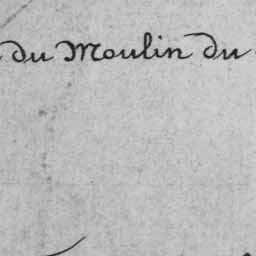 du Moulin du